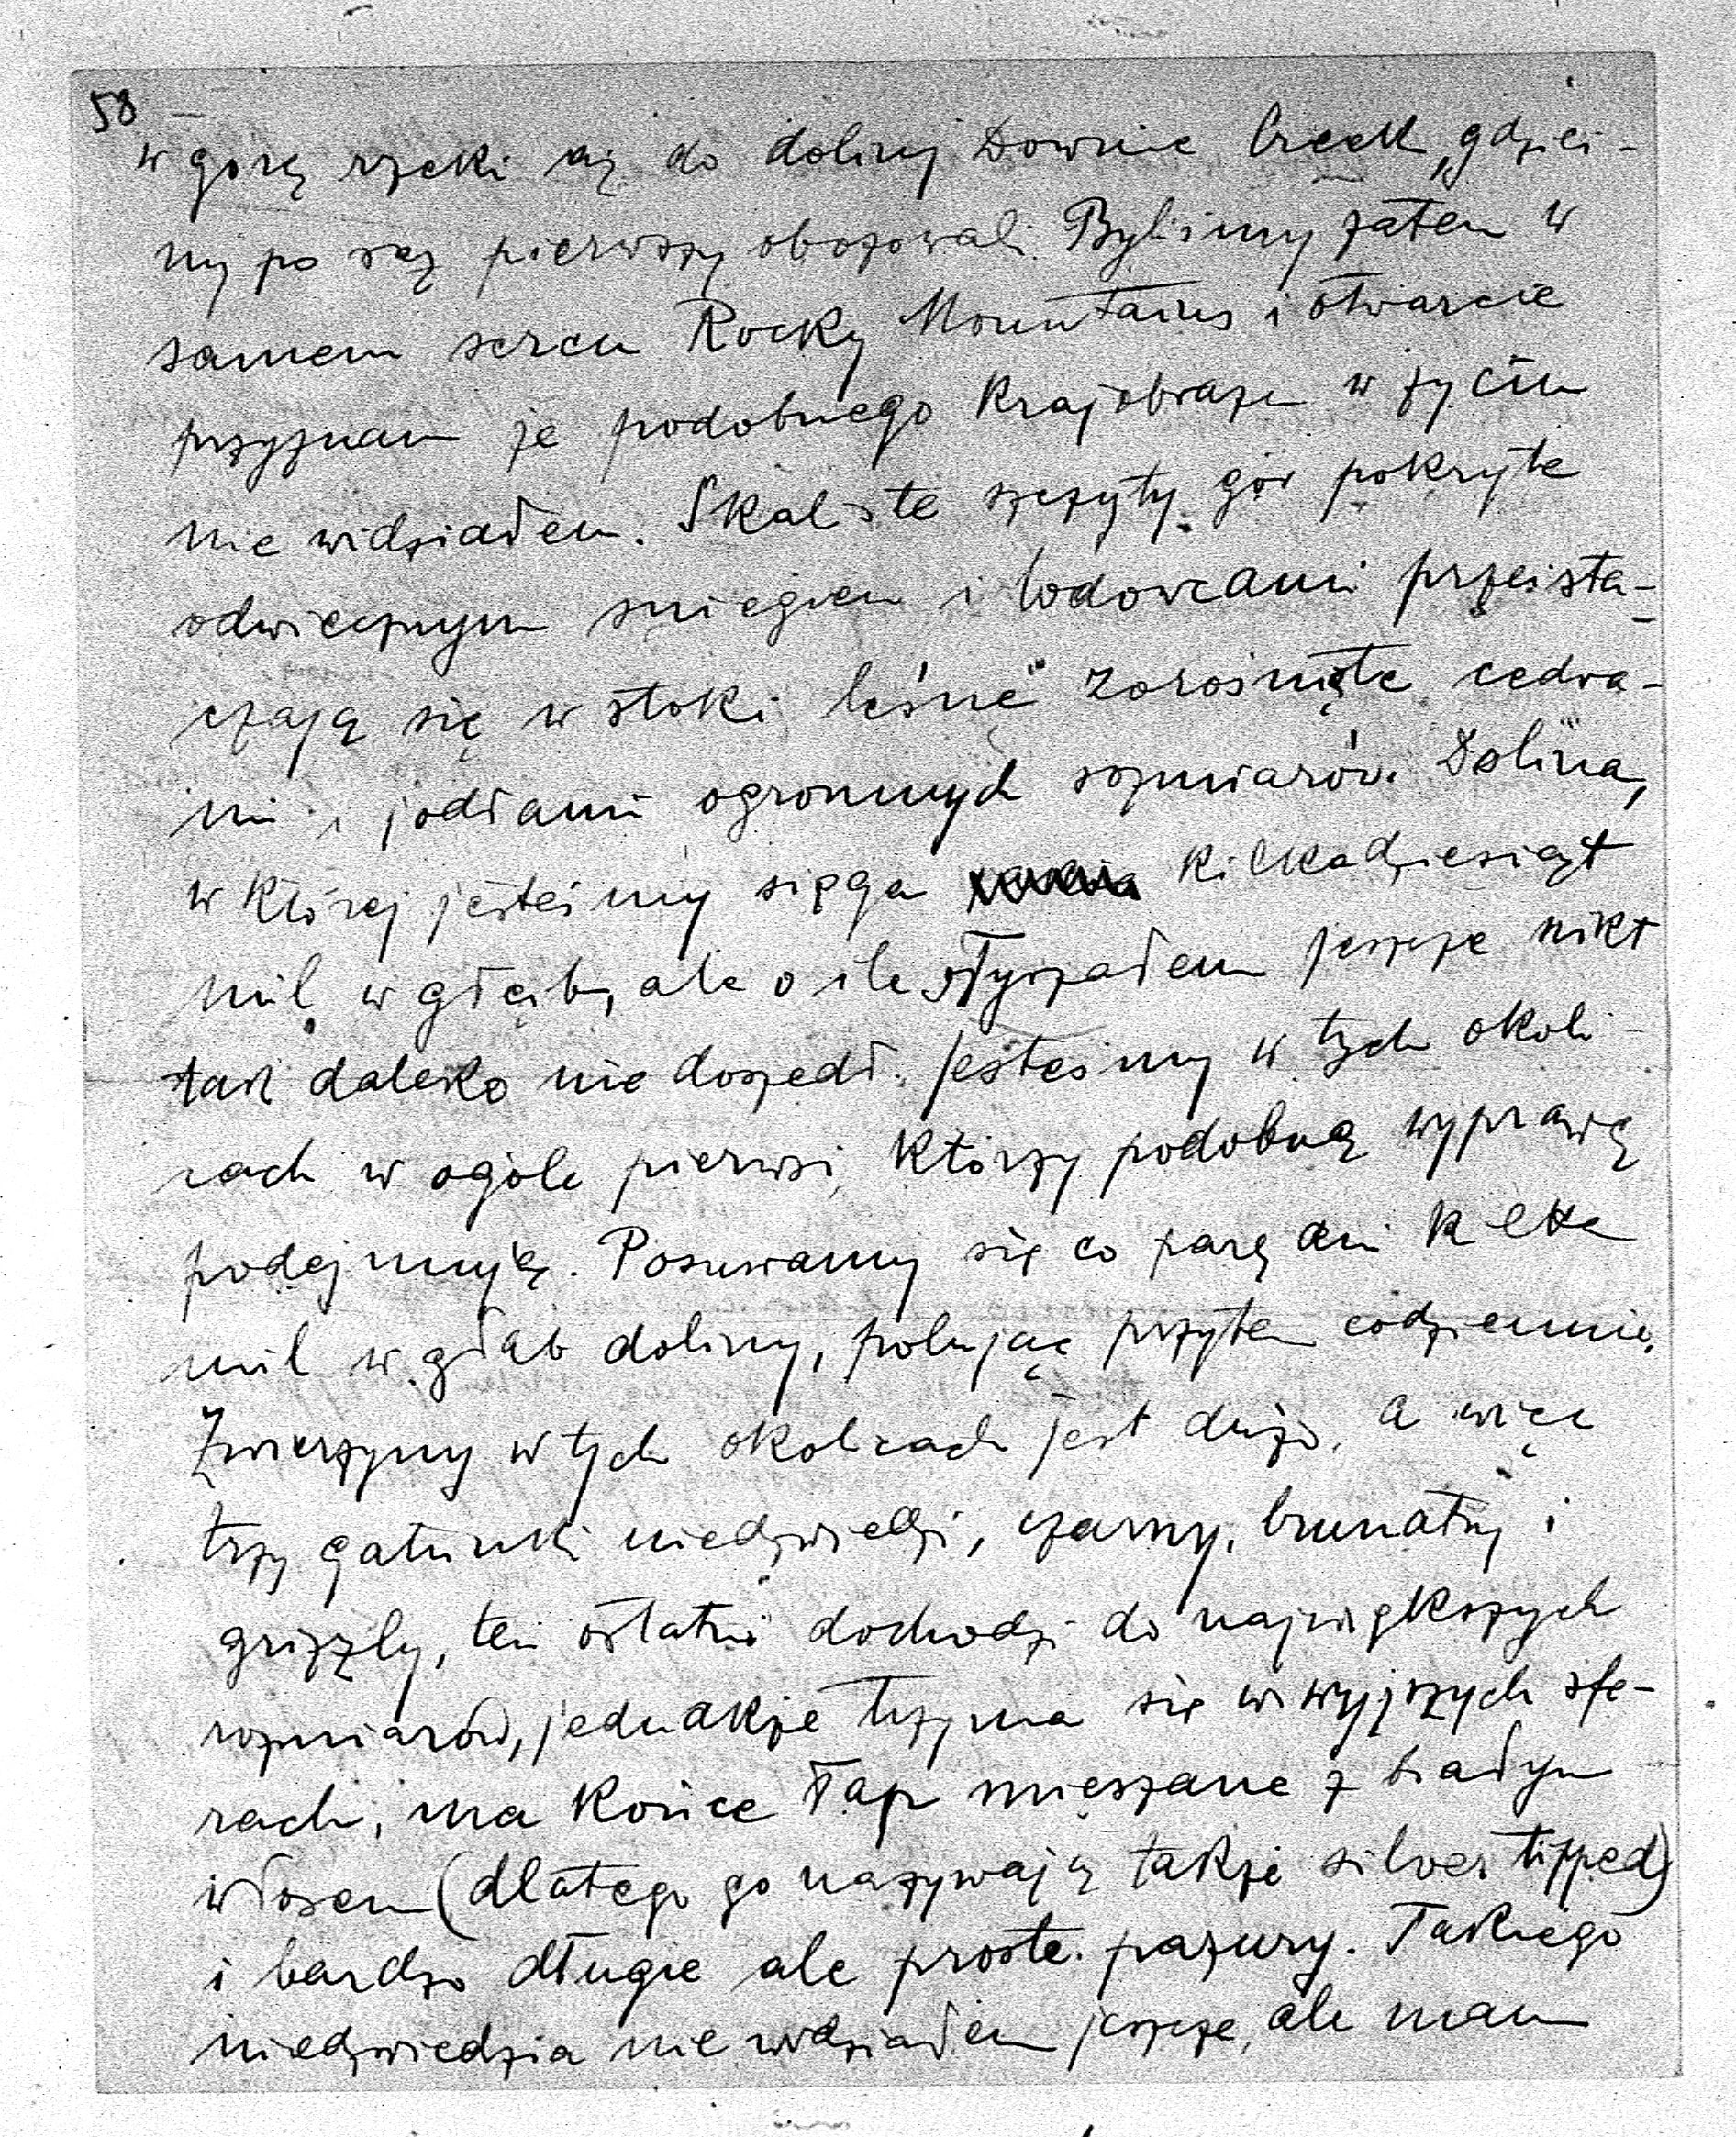 58
w górę rzeki aż do doliny Downie Creek, gdzieś-
my po raz pierwszy obozowali. Byliśmy zatem w
samem sercu Rocky Mountains i otwarcie
przyznam że podobnego krajobrazu w życiu
nie widziałem. Skaliste szczyty gór pokryte
odwiecznym śniegiem i lodowcami przeista-
czają się w stoki leśne zarośnięte cedra-
mi i jodłami ogromnych rozmiarów. Dolina,
w której jesteśmy sięga kilkadziesiąt
mil w głąb, ale o ile słyszałem jeszcze nikt
tak daleko nie doszedł. Jesteśmy w tych okoli-
cach w ogóle pierwsi, którzy podobną wyprawę
podejmują. Posuwamy się co parę dni kilka
mil w głąb doliny, polując przytem codziennie.
Zwierzyny w tych okolicach jest dużo, a więc
trzy gatunki niedźwiedzi, czarny, brunatny i
grizzly, ten ostatni dochodzi do największych
rozmiarów, jednakże trzyma się w wyższych sfe-
rach, ma końce łap mieszane z białym
włosem (dlatego go nazywają także silver tipped)
i bardzo długie ale proste pazury. Takiego
niedźwiedzia nie widziałem jeszcze, ale mam